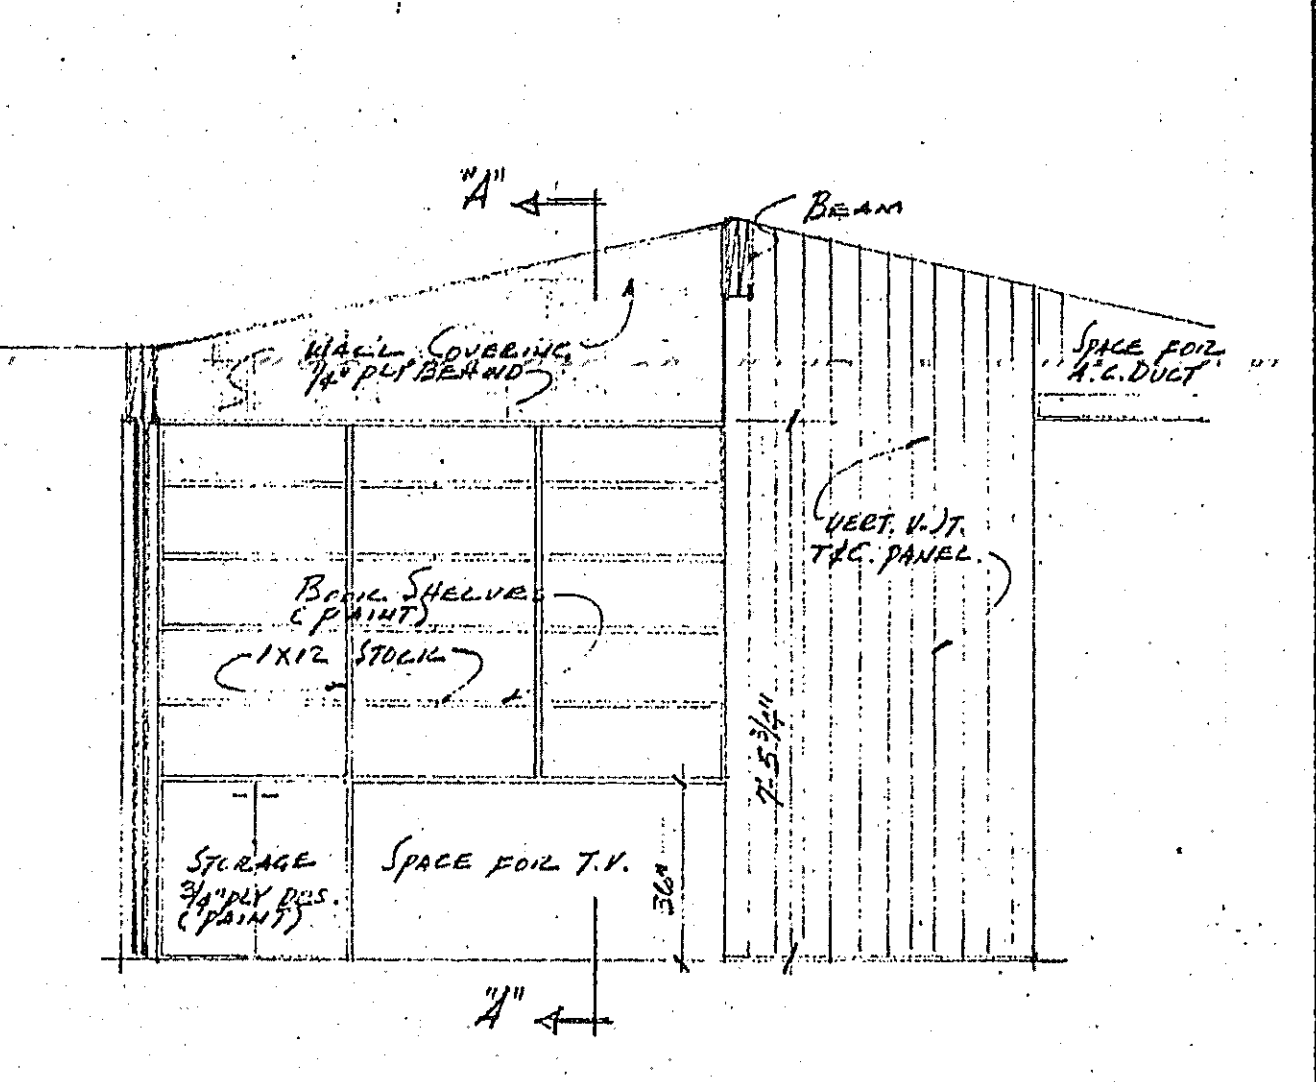 "A"
BEAM
WALL COVERING
1/4" PLY BEHIND
SPACE FOR
A.C. DUCT
VERT. V-JT.
T&G. PANEL
BOOK SHELVES
(PAINT)
1X12 STOCK
7'-5 3/4"
STORAGE
3/4" PLY DRS.
(PAINT)
SPACE FOR T.V.
36"
"A"